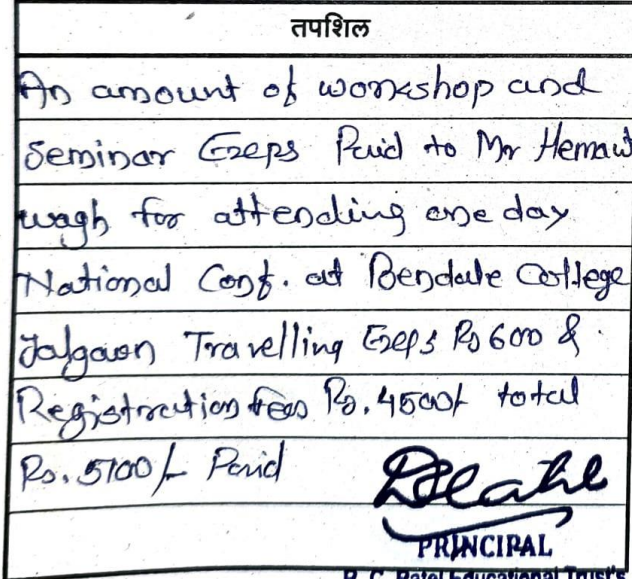 तपशिल
An amount of workshop and
Seminar Exeps Paid to Mr Hemant
wagh for attending one day
National Conf. at Bendale College
Jalgaon Travelling Exeps Rs 600 &
Registration fees Rs. 4500/- total
Rs. 5100/- Paid
PRINCIPAL
R. C. Patel Educational Trust's